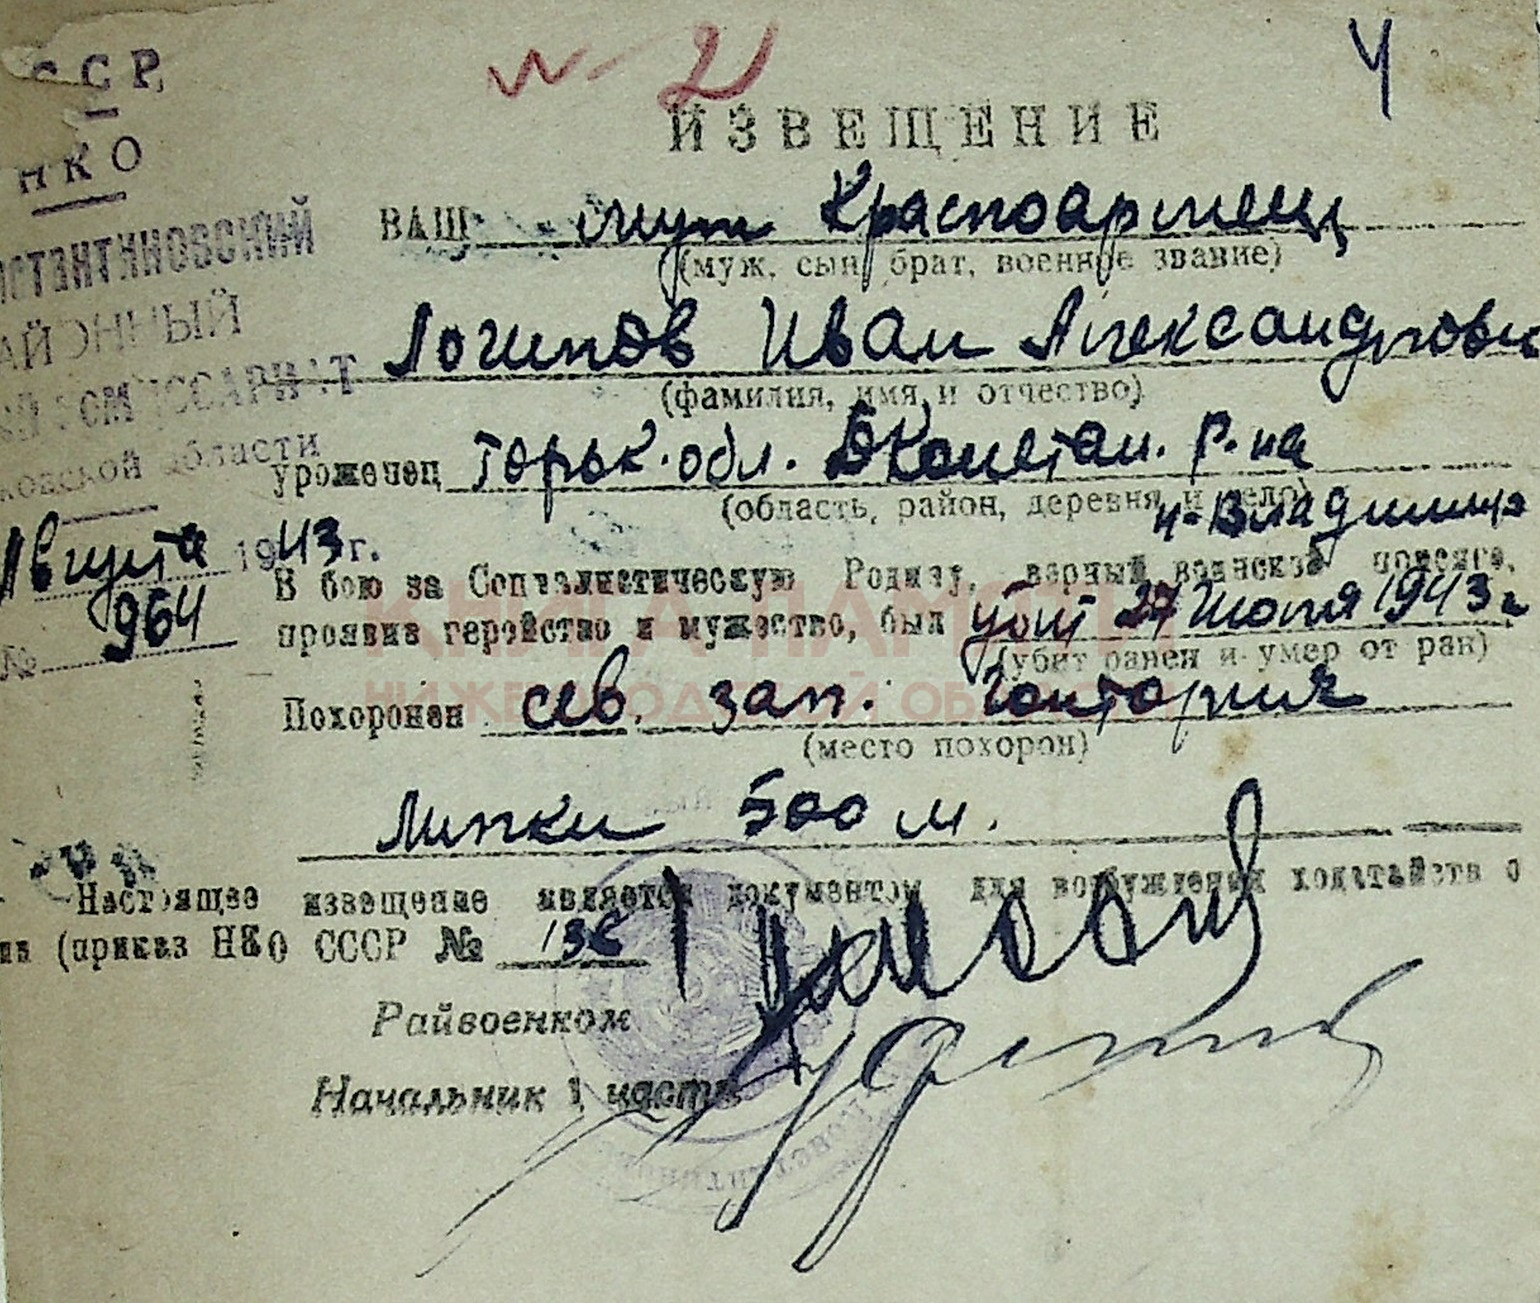 № 2
4
ССР
НКО
ИЗВЕЩЕНИЕ
ВАШ муж Красноармеец
(муж, сын, брат, военное звание)
КОНСТАНТИНОВСКИЙ
РАЙОННЫЙ
ВОЕНКОМИССАРИАТ
Логинов Иван Александрович
(фамилия, имя и отчество)
области
уроженец Горьк. обл. Дконстан. р-на
(область, район, деревня и село)
Августа 1943 г.
В бою за Социалистическую Родину, верный воинской присяге,
№ 964
проявив геройство и мужество, был убит 27 Июля 1943 г
(убит ранен и умер от ран)
Похоронен сев. зап.
(место похорон)
Липки 500 м.
Настоящее извещение является документом для возбуждения ходатайств о
(приказ НКО СССР № 138
Райвоенком
Начальник 1 части
КНИГА ПАМЯТИ
НИЖЕГОРОДСКОЙ ОБЛАСТИ